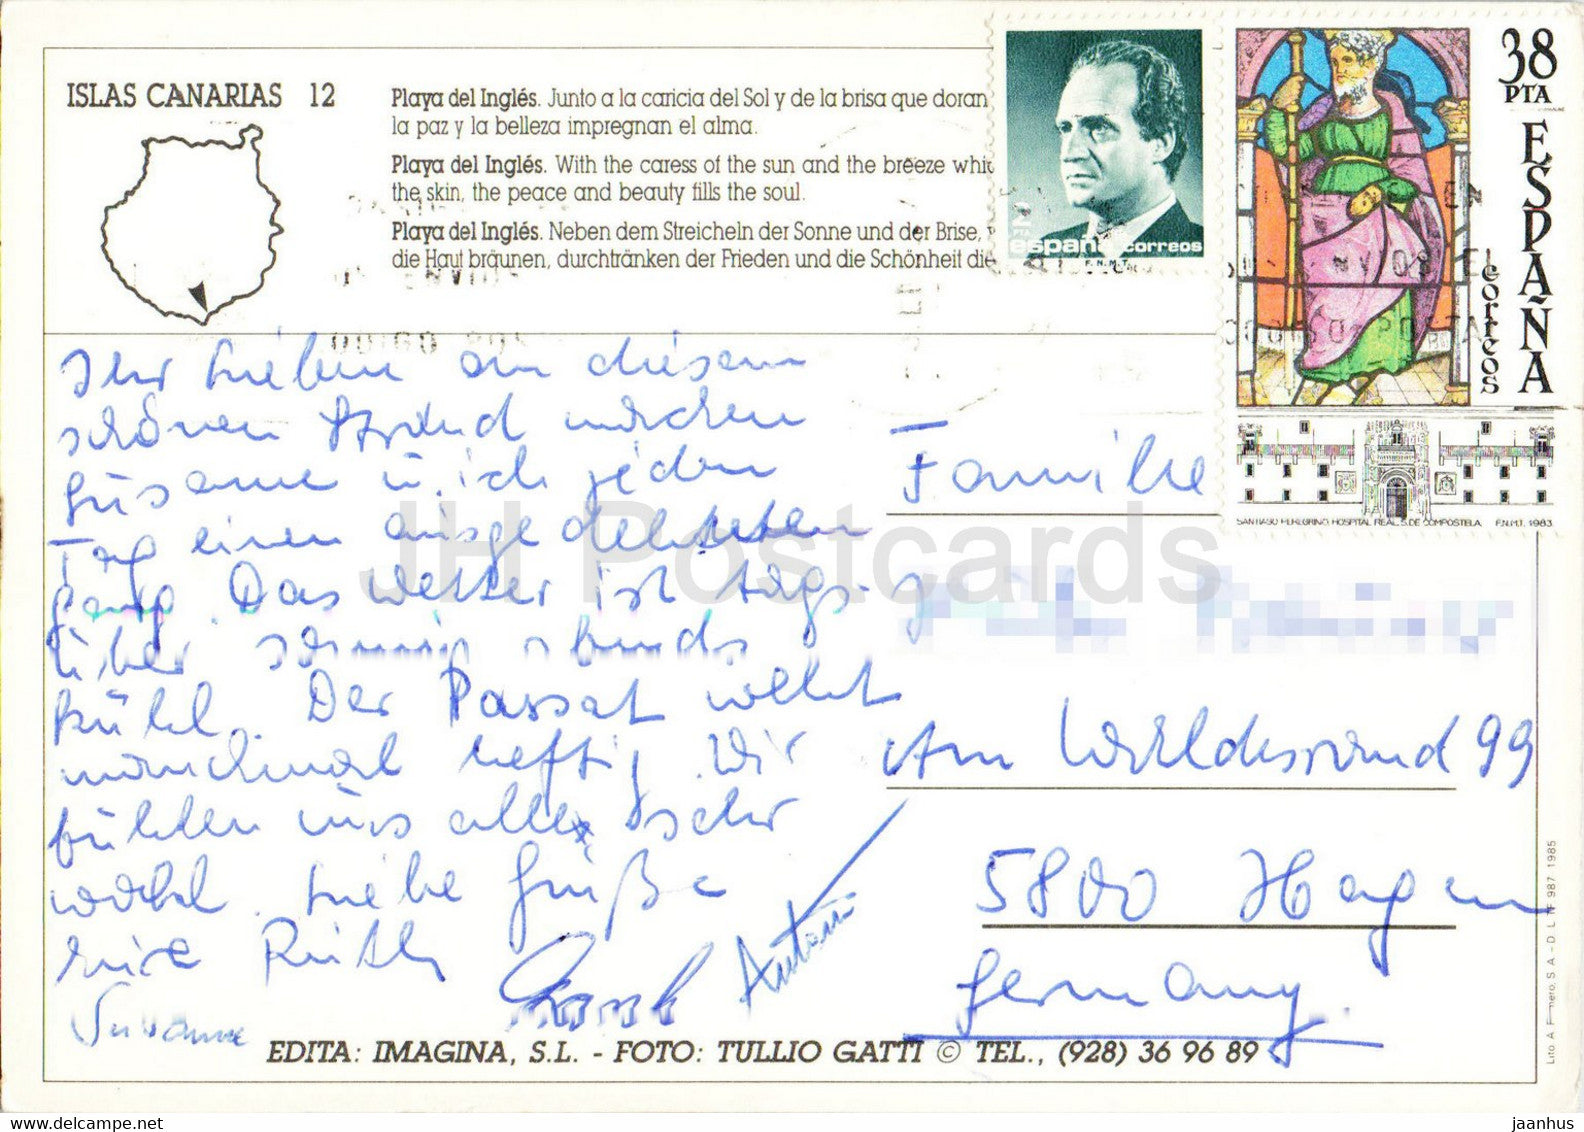 ISLAS CANARIAS 12
Playa del Inglés. Junto a la caricia del Sol y de la brisa que doran
la paz y la belleza impregnan el alma.
Playa del Inglés. With the caress of the sun and the breeze whic
the skin, the peace and beauty fills the soul.
Playa del Inglés. Neben dem Streicheln der Sonne und der Brise,
die Haut bräunen, durchtränken der Frieden und die Schönheit die
2 PTA
españa correos
F.N.M.T.
38 PTA
ESPAÑA
correos
SANTIAGO PEREGRINO, HOSPITAL REAL, S. DE COMPOSTELA F.N.M.T. 1983
Ihr Lieben an diesem
schönen Strand machen
Susanne u. ich jeden
Tag einen ausgedehnten
Gang. Das Wetter ist tags-
über sonnig abends
kühl. Der Passat weht
manchmal heftig. Wir
fühlen uns alle sehr
wohl. Liebe Grüße
Eure Ruth
Susanne
Familie
Am Waldesrand 99
5800 Hagen
Germany
JH Postcards
EDITA: IMAGINA, S.L. - FOTO: TULLIO GATTI © TEL., (928) 36 96 89
Lito. A. Romero, S. A. - D. L. TF 987 1985
https://www.delcampe.net
jaanhus